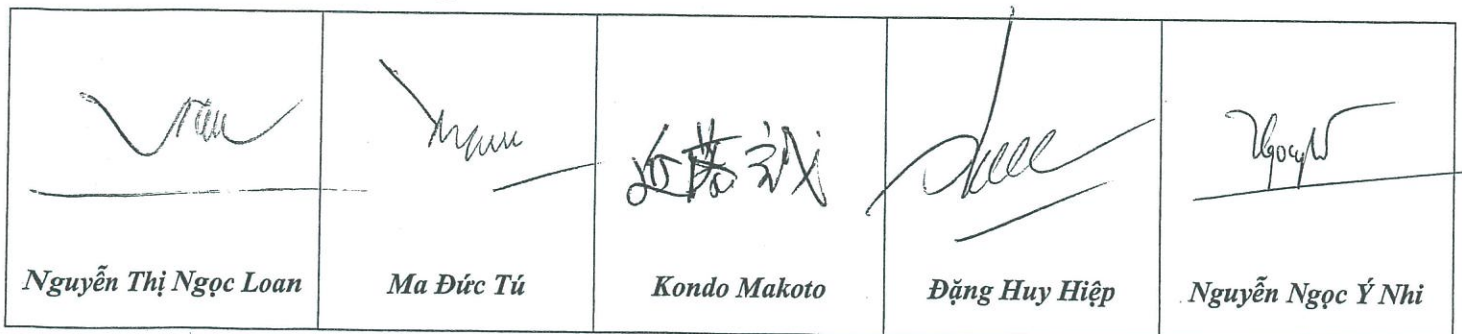 近藤誠
Nguyễn Thị Ngọc Loan
Ma Đức Tú
Kondo Makoto
Đặng Huy Hiệp
Nguyễn Ngọc Ý Nhi